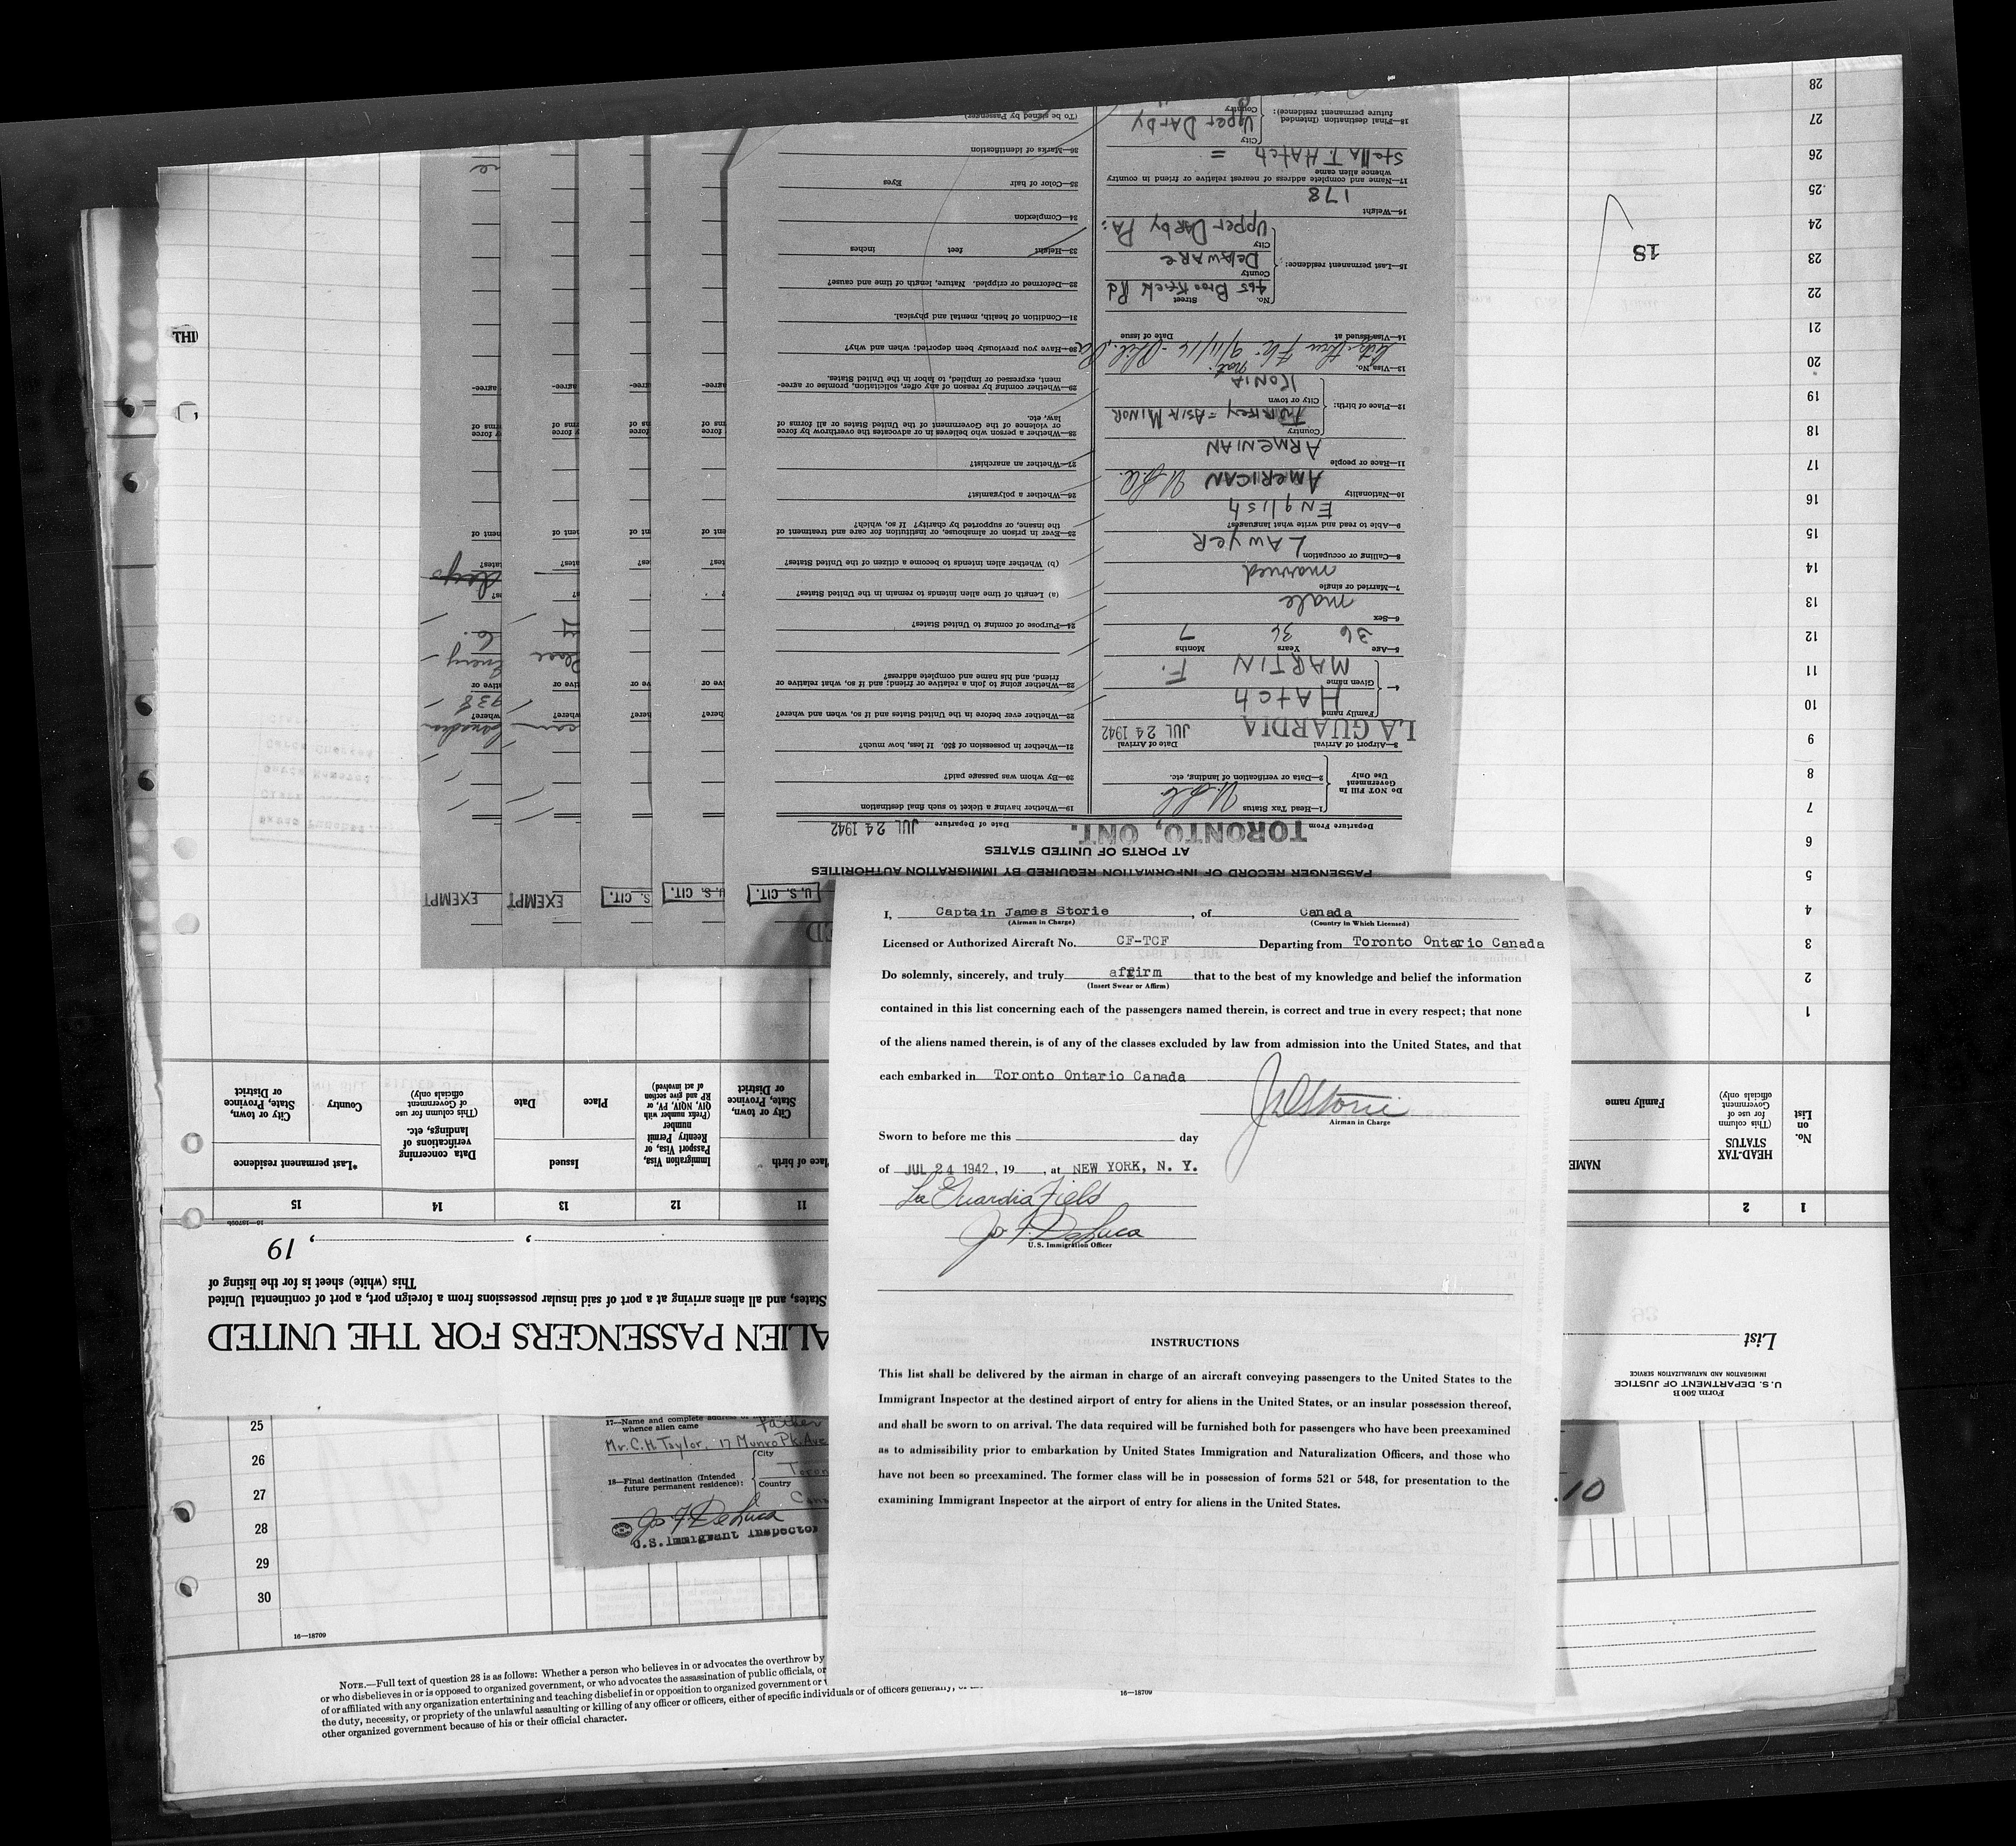 I, Captain James Storie, of Canada
(Airman in Charge) (Country in Which Licensed)
Licensed or Authorized Aircraft No. CF-TCF Departing from Toronto Ontario Canada
Do solemnly, sincerely, and truly affirm that to the best of my knowledge and belief the information
(Insert Swear or Affirm)
contained in this list concerning each of the passengers named therein, is correct and true in every respect; that none
of the aliens named therein, is of any of the classes excluded by law from admission into the United States, and that
each embarked in Toronto Ontario Canada
Airman in Charge
Sworn to before me this day
of JUL 24 1942, 19 , at NEW YORK, N. Y.
La Guardia Field
Jos F. DeLuca
U.S. Immigration Officer
INSTRUCTIONS
This list shall be delivered by the airman in charge of an aircraft conveying passengers to the United States to the
Immigrant Inspector at the destined airport of entry for aliens in the United States, or an insular possession thereof,
and shall be sworn to on arrival. The data required will be furnished both for passengers who have been preexamined
as to admissibility prior to embarkation by United States Immigration and Naturalization Officers, and those who
have not been so preexamined. The former class will be in possession of forms 521 or 548, for presentation to the
examining Immigrant Inspector at the airport of entry for aliens in the United States.
16—18709
U. S. CIT.
U. S. CIT.
S. CIT.
EXEMPT
EXEMPT
PASSENGER RECORD OF INFORMATION REQUIRED BY IMMIGRATION AUTHORITIES
AT PORTS OF UNITED STATES
Departure From TORONTO, ONT. Date of Departure JUL 24 1942
Do NOT Fill In
Government
Use Only
1—Head Tax Status
2—Data or verification of landing, etc.
3—Airport of Arrival LA GUARDIA Date of Arrival JUL 24 1942
4— Family name HATCH
Given name MARTIN F.
5—Age 36 Years 36 Months 7
6—Sex male
7—Married or single married
8—Calling or occupation LAWYER
9—Able to read and write what languages? ENGLISH
10—Nationality AMERICAN
11—Race or people ARMENIAN
12—Place of birth: Country TURKEY = ASIA MINOR
City or town KONIA
13—Visa No.
14—Visa issued at Date of issue
15—Last permanent residence: No. Street 465 Brookfield Rd
County DELAWARE
City Upper Darby PA:
16—Weight 178
17—Name and complete address of nearest relative or friend in country
whence alien came
Stella T. Hatch =
18—Final destination (Intended
future permanent residence): City Upper Darby
Country
19—Whether having a ticket to such final destination
20—By whom was passage paid?
21—Whether in possession of $50. If less, how much?
22—Whether ever before in the United States and if so, when and where?
23—Whether going to join a relative or friend; and if so, what relative or
friend, and his name and complete address?
24—Purpose of coming to United States?
(a) Length of time alien intends to remain in the United States?
(b) Whether alien intends to become a citizen of the United States?
25—Ever in prison or almshouse, or institution for care and treatment of
the insane, or supported by charity? If so, which?
26—Whether a polygamist?
27—Whether an anarchist?
28—Whether a person who believes in or advocates the overthrow by force
or violence of the Government of the United States or all forms of
law, etc.
29—Whether coming by reason of any offer, solicitation, promise or agree-
ment, expressed or implied, to labor in the United States.
30—Have you previously been deported; when and why?
31—Condition of health, mental and physical.
32—Deformed or crippled. Nature, length of time and cause?
33—Height feet inches
34—Complexion
35—Color of hair Eyes
36—Marks of identification
(To be signed by Passenger)
Form 500 B
U. S. DEPARTMENT OF JUSTICE
IMMIGRATION AND NATURALIZATION SERVICE
List
ALIEN PASSENGERS FOR THE UNITED
States, and all aliens arriving at a port of said insular possessions from a foreign port, a port of continental United
This (white) sheet is for the listing of
, , 19
1 2 11 12 13 14 15
No.
on
List
HEAD-TAX
STATUS
(This column
for use of
Government
officials only)
NAME
Family name
City or town,
State, Province
or District
Immigration Visa,
Passport Visa, or
Reentry Permit
number
(Prefix number with
QIV, NQIV, PV, or
RP and give section
of act involved)
Issued
Place
Date
Data concerning
verifications of
landings, etc.
(This column for use
of Government
officials only)
*Last permanent residence
Country
City or town,
State, Province
or District
1
2
3
4
5
6
7
8
9
10
11
12
13
14
15
16
17
18
19
20
21
22
23
24
25
26
27
28
18
THI
25
26
27
28
29
30
17—Name and complete address of
whence alien came father
Mr. C. H. Taylor, 17 Munro Pk. Ave
18—Final destination (Intended
future permanent residence): City
Country
Jos F. DeLuca
U.S. Immigrant Inspector
.10
16—18709
NOTE.—Full text of question 28 is as follows: Whether a person who believes in or advocates the overthrow by
or who disbelieves in or is opposed to organized government, or who advocates the assassination of public officials, or
of or affiliated with any organization entertaining and teaching disbelief in or opposition to organized government or
the duty, necessity, or propriety of the unlawful assaulting or killing of any officer or officers, either of specific individuals or of officers generally,
other organized government because of his or their official character.